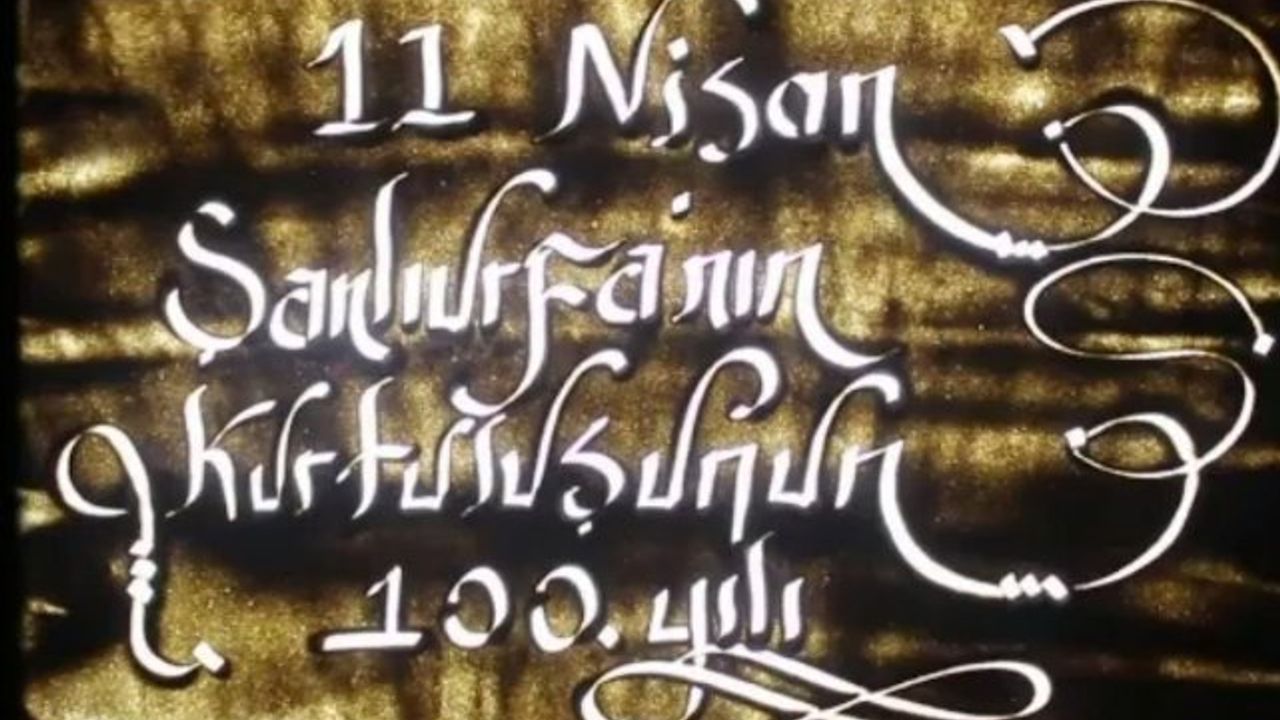 11 Nisan
Şanlıurfa'nın
Kurtuluşunun
100. yılı